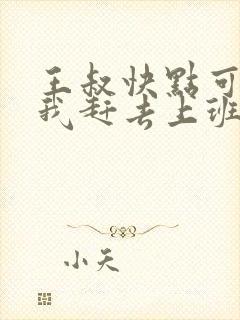 王叔快點可
我赶去上班
小天